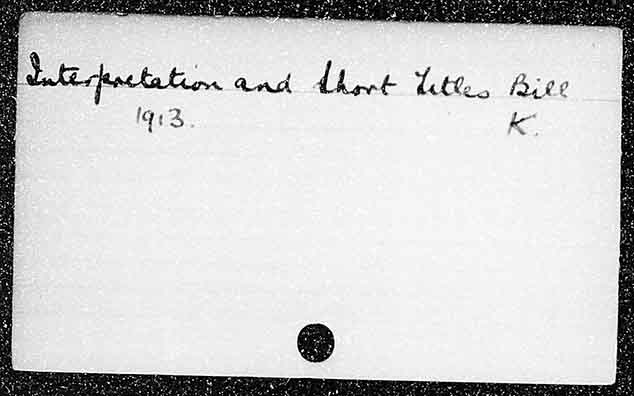 Interpretation and Short Titles Bill
1913. K.